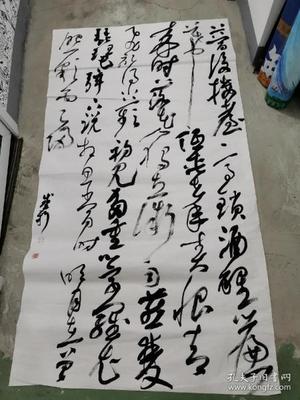 梦后楼台高锁酒醒帘
幕低垂去年春恨却
来时落花人独立微雨燕双
飞记得小苹初见两重心字罗衣
琵琶弦上说相思当时明月在曾
照彩云归
孔夫子旧书网